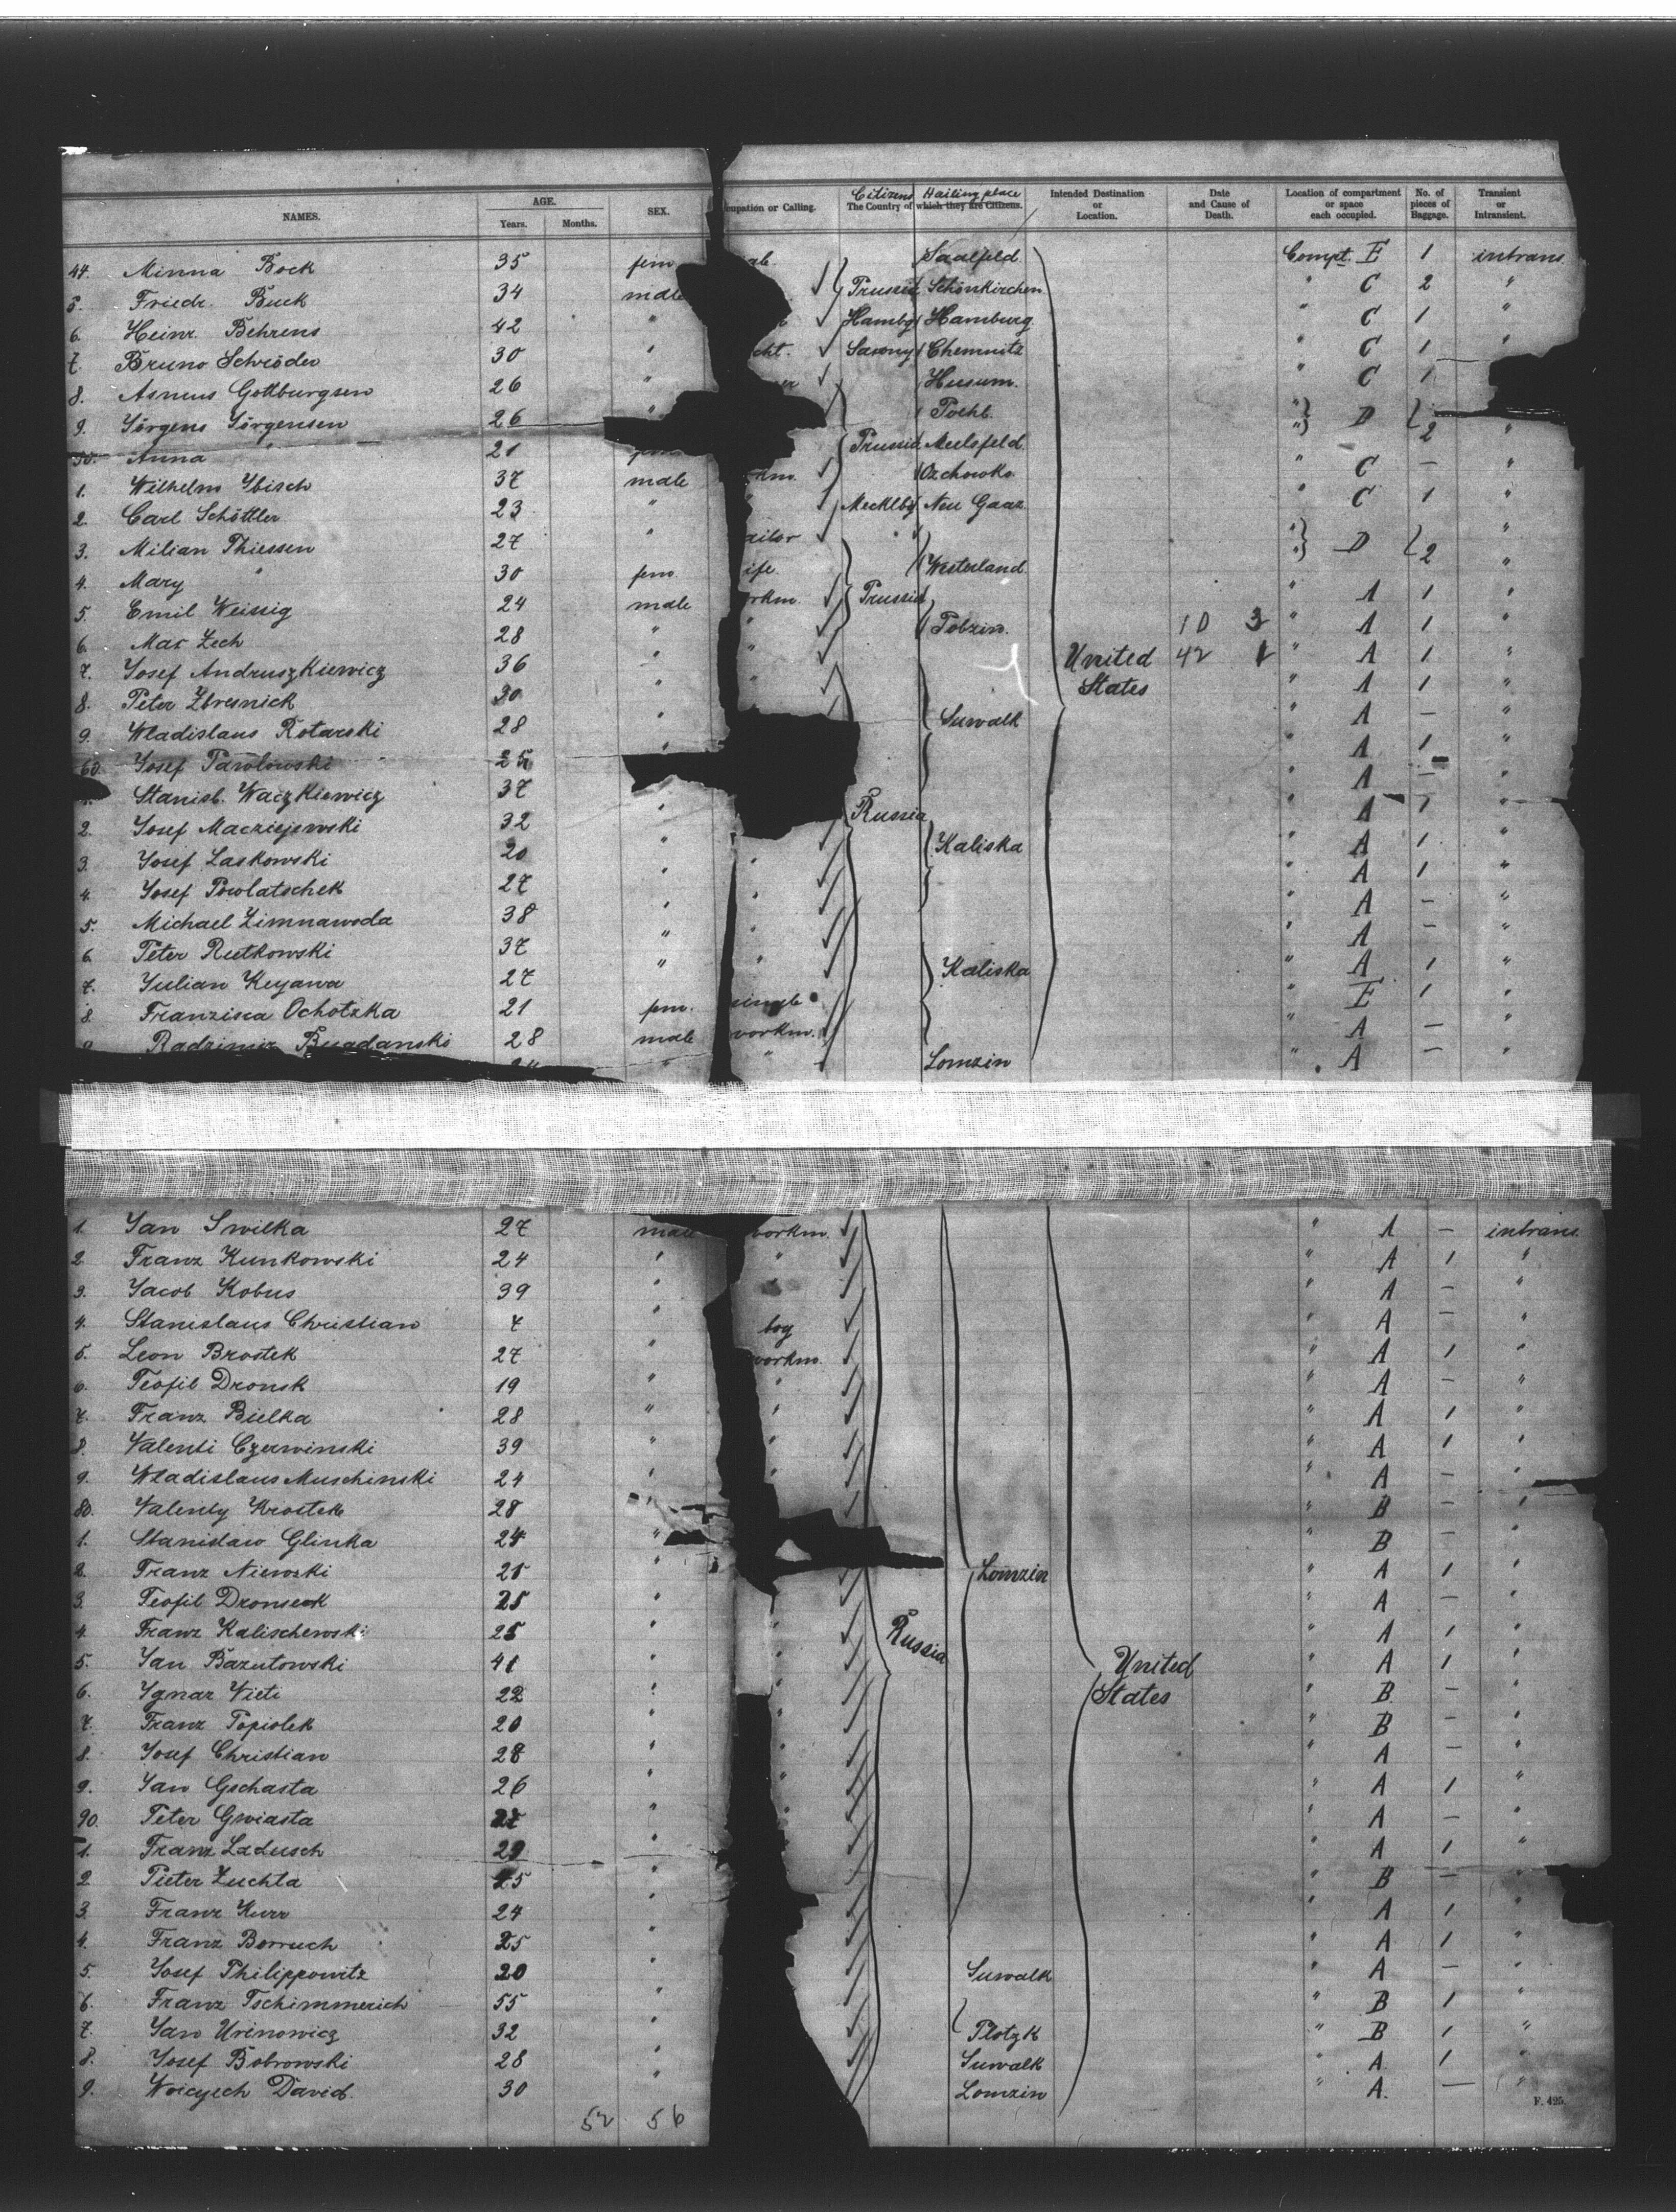 NAMES. AGE. Years. Months. SEX. upation or Calling. Citizens The Country of Hailing place which they are Citizens. Intended Destination or Location. Date and Cause of Death. Location of compartment or space each occupied. No. of pieces of Baggage. Transient or Intransient.
44. Minna Bock 35 fem Saalfeld Compt. E 1 intrans
5. Friedr. Buck 34 male Prussia Schönkirchen C 2 "
6. Heinr. Behrens 42 " Hambg Hamburg " C 1 "
7. Bruno Schröder 30 " cht. Saxony Chemnitz " C 1 "
8. Asmus Gottburgsen 26 " Husum. " C 1
9. Jörgens Jörgensen 26 " " D 2
50. Anna " 21 Prussia Meelsfeld " "
1. Wilhelm Ybisch 37 male rkm. Ozchowko " C — "
2. Carl Schöttler 23 " " Mecklbg Neu Gaaz " C 1 "
3. Milian Thiessen 27 " ailor " D 2 "
4. Mary " 30 fem. ife. Westerland "
5. Emil Weissig 24 male rkm. Prussia " A 1 "
6. Max Zech 28 " " Tobzin. 10 3 " A 1 "
7. Josef Andruszkiewicz 36 " " United 42 1 " A 1 "
8. Peter Zbresnick 30 " " States " A 1 "
9. Wladislaus Rotarski 28 " Suwalk " A — "
60. Josef Pawlowski 25 " " A 1 "
Stanisl. Waczkiewicz 37 " A — "
2. Josef Macziejewski 32 " Russia " A 1 "
3. Josef Laskowski 20 " " Kaliska " A 1 "
4. Josef Powlatschek 27 " " " A 1 "
5. Michael Zimnawoda 38 " " " A — "
6. Peter Rutkowski 37 " " " A — "
7. Julian Kuyawa 27 " " Kaliska " A 1 "
8. Franzisca Ochotzka 21 fem. single " E 1 "
9. Radzimir Bugdanski 28 male workm. " A — "
" " Lomzin " A — "
1. Jan Smilka 27 male workm. " A — intrans.
2. Franz Kunkowski 24 " " " A 1 "
3. Jacob Kobus 39 " " " A — "
4. Stanislaus Christian 7 " boy " A — "
5. Leon Brostek 27 " workm. " A 1 "
6. Teofil Dronsk 19 " " " A — "
7. Franz Bielka 28 " " " A 1 "
8. Valenti Czerwinski 39 " " " A 1 "
9. Wladislaus Muschinski 24 " " " A — "
80. Valenty Krostek 28 " B — "
1. Stanislaw Glinka 24 " " B — "
2. Franz Niewski 25 " Lomzin " A 1 "
3. Teofil Dronseck 25 " " A — "
4. Franz Kalischewski 25 " " Russia " A 1 "
5. Jan Bazutowski 41 " " United " A 1 "
6. Ygnaz Vieti 22 " " States " B — "
7. Franz Popiolek 20 " " " B — "
8. Josef Christian 28 " " " A — "
9. Jan Gschasta 26 " " " A 1 "
90. Peter Gwiasta 27 " " " A — "
1. Franz Ladusch 29 " " " A 1 "
2. Pieter Zuchta 25 " " B — "
3. Franz Kurr 24 " " A 1 "
4. Franz Borruch 25 " " A 1 "
5. Josef Philippowitz 20 " Suwalk " A — "
6. Franz Tschimmerich 55 " " B 1 "
7. Jan Urinowicz 32 " Plotzk " B 1 "
8. Josef Bobrowski 28 " Suwalk " A. 1 "
9. Woicyech David. 30 " Lomzin " A. — "
F. 425.
52 56